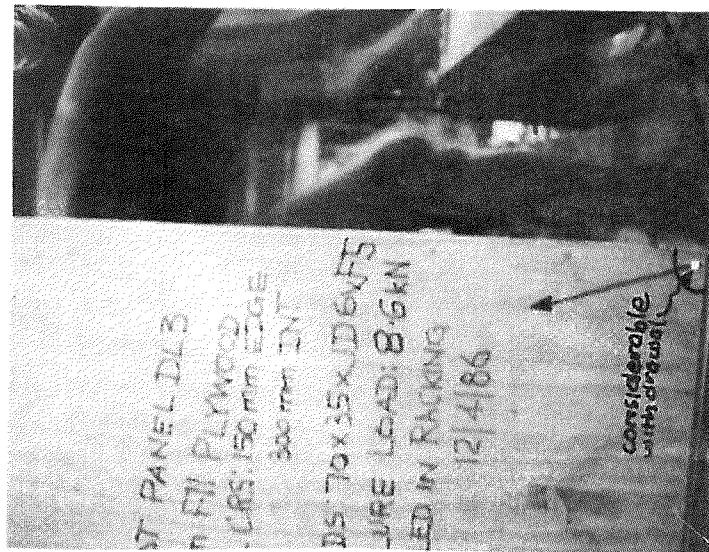 AT PANEL DL3
F11 PLYWOOD
CRS: 150 mm EDGE
300 mm INT
DS 70x35xJD6xF5
URE LOAD: 8.6kN
LED IN RACKING
12/4/86
considerable
withdrawal